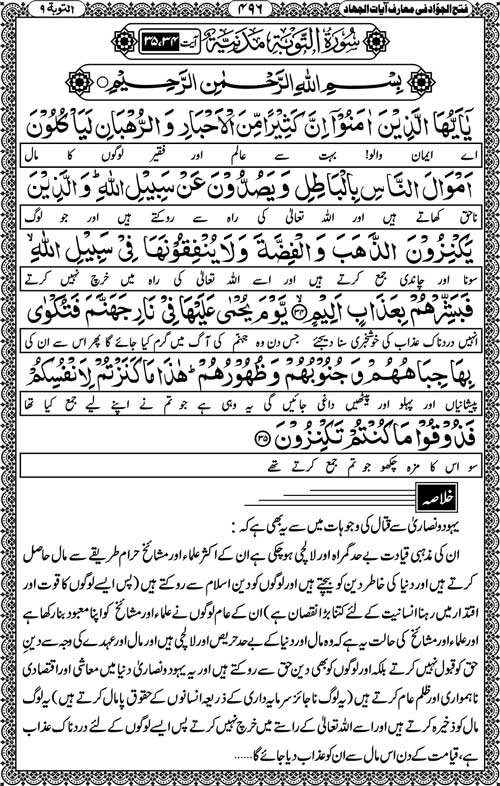 فتح الجوّاد فی معارف آیات الجهاد ۴۹۶ التوبة ۹
سُوْرَةُ التَّوْبَةِ مَدَنِيَّةٌ آیت ۳۵،۳۴
بِسْمِ اللهِ الرَّحْمٰنِ الرَّحِيْمِ
يٰۤاَيُّهَا الَّذِيْنَ اٰمَنُوْۤا اِنَّ كَثِيْرًا مِّنَ الْاَحْبَارِ وَالرُّهْبَانِ لَيَاْكُلُوْنَ
اے ایمان والو! بہت سے عالم اور فقیر لوگوں کا مال
اَمْوَالَ النَّاسِ بِالْبَاطِلِ وَيَصُدُّوْنَ عَنْ سَبِيْلِ اللهِ ؕ وَالَّذِيْنَ
ناحق کھاتے ہیں اور اللہ تعالیٰ کی راہ سے روکتے ہیں اور جو لوگ
يَكْنِزُوْنَ الذَّهَبَ وَالْفِضَّةَ وَلَا يُنْفِقُوْنَهَا فِيْ سَبِيْلِ اللهِ ۙ
سونا اور چاندی جمع کرتے ہیں اور اسے اللہ تعالیٰ کی راہ میں خرچ نہیں کرتے
فَبَشِّرْهُمْ بِعَذَابٍ اَلِيْمٍ ۙ ۳۴ يَّوْمَ يُحْمٰى عَلَيْهَا فِيْ نَارِ جَهَنَّمَ فَتُكْوٰى
انہیں دردناک عذاب کی خوشخبری سنا دیجئے جس دن وہ جہنم کی آگ میں گرم کیا جائے گا پھر اس سے ان کی
بِهَا جِبَاهُهُمْ وَجُنُوْبُهُمْ وَظُهُوْرُهُمْ ؕ هٰذَا مَا كَنَزْتُمْ لِاَنْفُسِكُمْ
پیشانیاں اور پہلو اور پیٹھیں داغی جائیں گی یہ وہی ہے جو تم نے اپنے لیے جمع کیا تھا
فَذُوْقُوْا مَا كُنْتُمْ تَكْنِزُوْنَ ۳۵
سو اس کا مزہ چکھو جو تم جمع کرتے تھے
خلاصہ
یہود و نصاریٰ سے قتال کی وجوہات میں سے یہ بھی ہے کہ:
ان کی مذہبی قیادت بے حد گمراہ اور لالچی ہو چکی ہے ان کے اکثر علماء اور مشائخ حرام طریقے سے مال حاصل
کرتے ہیں اور دنیا کی خاطر دین کو بیچتے ہیں اور لوگوں کو دین اسلام سے روکتے ہیں (پس ایسے لوگوں کا قوت اور
اقتدار میں رہنا انسانیت کے لئے کتنا بڑا نقصان ہے) ان کے عام لوگوں نے علماء اور مشائخ کو اپنا معبود بنا رکھا ہے
اور علماء اور مشائخ کی حالت یہ ہے کہ وہ مال اور دنیا کے بے حد حریص اور لالچی ہیں اور مال اور عہدے کی وجہ سے دین
حق کو قبول نہیں کرتے بلکہ اور لوگوں کو بھی دین حق سے روکتے ہیں اور یہ یہود و نصاریٰ دنیا میں معاشی اور اقتصادی
ناہمواری اور ظلم عام کرتے ہیں (یہ لوگ ناجائز سرمایہ داری کے ذریعہ انسانوں کے حقوق پامال کرتے ہیں) یہ لوگ
مال کو ذخیرہ کرتے ہیں اور اسے اللہ تعالیٰ کے راستے میں خرچ نہیں کرتے پس ایسے لوگوں کے لئے دردناک عذاب
ہے، قیامت کے دن اس مال سے ان کو عذاب دیا جائے گا......